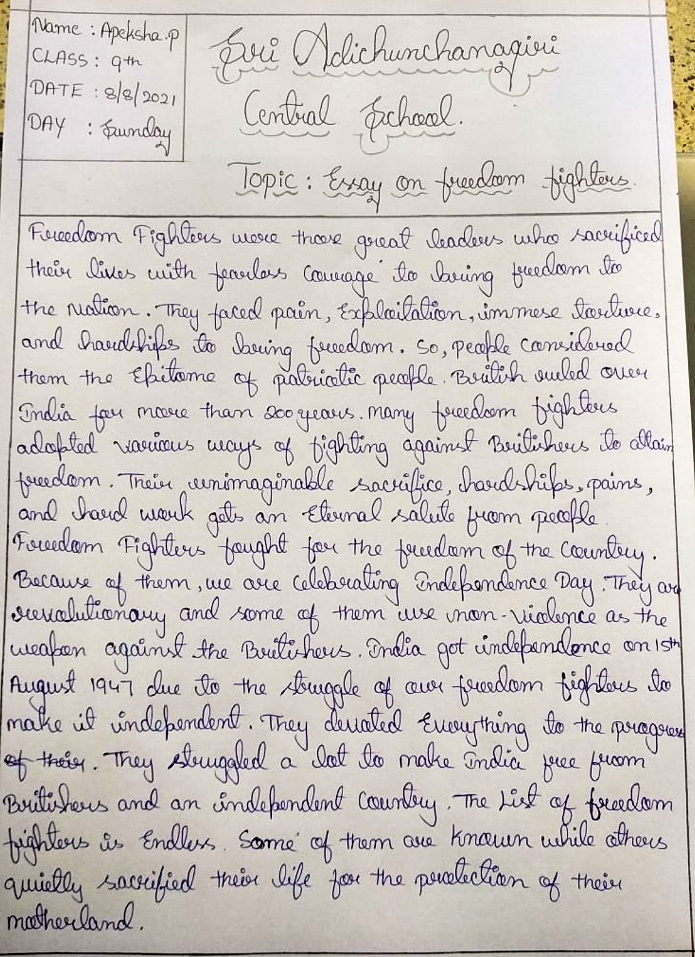 Name : Apeksha.P
CLASS : 9th
DATE : 8/8/2021
DAY : Sunday
Sri Adichunchanagiri
Central School.
Topic : Essay on freedom fighters.
Freedom Fighters were those great leaders who sacrificed
their lives with fearless courage to bring freedom to
the Nation. They faced pain, Exploitation, immese torture,
and hardships to bring freedom. So, people considered
them the Epitome of patriotic people. British ruled over
India for more than 200 years. Many freedom fighters
adopted various ways of fighting against Britishers to attain
freedom. Their unimaginable sacrifice, hardships, pains,
and hard work gets an Eternal salute from people.
Freedom Fighters fought for the freedom of the Country.
Because of them, we are Celebrating Independence Day. They are
revolutionary and some of them use non-violence as the
weapon against the Britishers. India got independence on 15th
August 1947 due to the struggle of our freedom fighters to
make it independent. They devoted Everything to the progress
of their. They struggled a lot to make India free from
Britishers and an independent Country. The List of freedom
fighters is Endless. Some of them are Known while others
quietly sacrified their life for the protection of their
motherland.